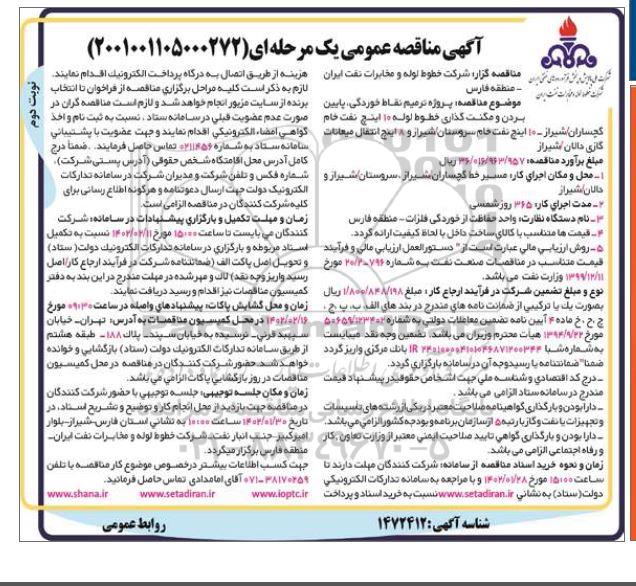 آگهی مناقصه عمومی یک مرحله ای (۲۰۰۱۰۰۱۱۰۵۰۰۰۲۷۲)
نوبت دوم
شرکت ملی پالایش و پخش فرآورده های نفتی ایران
شرکت خطوط لوله و مخابرات نفت ایران
مناقصه گزار: شرکت خطوط لوله و مخابرات نفت ایران
– منطقه فارس
موضوع مناقصه: پروژه ترمیم نقاط خوردگی، پایین
بردن و مگنت گذاری خطوط لوله ۱۰ اینچ نفت خام
گچساران/شیراز – ۱۰ اینچ نفت خام سروستان/شیراز و ۸ اینچ انتقال میعانات
گازی دالان/شیراز
مبلغ برآورد مناقصه: ۳۶/۰۱۶/۹۶۳/۹۵۷ ریال
۱– محل و مکان اجرای کار: مسیر خط گچساران/شیراز، سروستان/شیراز و
دالان/شیراز
۲– مدت اجرای کار: ۳۶۵ روز شمسی
۳– نام دستگاه نظارت: واحد حفاظت از خوردگی فلزات – منطقه فارس
۴– قیمت ها متناسب با کالای ساخت داخل با لحاظ کیفیت ارائه گردد.
۵– روش ارزیابی مالی عبارت است از "دستورالعمل ارزیابی مالی و فرآیند
قیمت متناسب در مناقصات صنعت نفت به شماره ۷۹۶–۲۰/۲ مورخ
۱۳۹۹/۱۲/۱۱ وزارت نفت می باشد.
نوع و مبلغ تضمین شرکت در فرآیند ارجاع کار: مبلغ ۱/۸۰۰/۸۴۸/۱۹۸ ریال
بصورت یک یا ترکیبی از ضمانت نامه های مندرج در بند های الف، ب، پ،
ج، چ، خ ماده ۴ آیین نامه تضمین معاملات دولتی به شماره ۵۰۶۵۹/۱۲۳۴۰۲
مورخ ۱۳۹۴/۹/۲۲ هیات محترم وزیران می باشد. تضمین وجه نقد میبایست
به شماره شبا IR بانک مرکزی واریز گردد
ضمنا" ضمانتنامه یا رسید وجه آن در سامانه بارگزاری گردد.
– درج کد اقتصادی و شناسه ملی جهت اشخاص حقوقی در پیشنهاد قیمت
مندرج در سامانه ستاد الزامی می باشد.
– دارا بودن و بارگذاری گواهینامه صلاحیت معتبر در یکی از رشته های تاسیسات
و تجهیزات یا نفت و گاز با رتبه ۵ از سازمان برنامه و بودجه کشور الزامی می باشد.
– دارا بودن و بارگذاری گواهی تایید صلاحیت ایمنی معتبر از وزارت تعاون، کار
و رفاه اجتماعی الزامی می باشد.
زمان و نحوه خرید اسناد مناقصه از سامانه: شرکت کنندگان مهلت دارند تا
ساعت ۱۵:۰۰ مورخ ۱۴۰۲/۰۱/۲۸ و با مراجعه به سامانه تدارکات الکترونیکی
دولت (ستاد) به نشانی www.setadiran.ir نسبت به خرید اسناد و پرداخت
هزینه از طریق اتصال به درگاه پرداخت الکترونیک اقدام نمایند.
لازم به ذکر است کلیه مراحل برگزاری مناقصه از فراخوان تا انتخاب
برنده از سایت مزبور انجام خواهد شد و لازم است مناقصه گران در
صورت عدم عضویت قبلی در سامانه ستاد، نسبت به ثبت نام و اخذ
گواهی امضاء الکترونیکی اقدام نمایند و جهت عضویت با پشتیبانی
سامانه ستاد به شماره ۰۲۱۱۴۵۶ تماس حاصل فرمایند. ضمنا درج
کامل آدرس محل اقامتگاه شخص حقوقی (آدرس پستی شرکت)،
شماره فکس و تلفن شرکت و مدیران شرکت در سامانه تدارکات
الکترونیک دولت جهت ارسال دعوتنامه و هرگونه اطلاع رسانی برای
کلیه شرکت کنندگان در مناقصه الزامی است.
زمان و مهلت تکمیل و بارگزاری پیشنهادات در سامانه: شرکت
کنندگان می بایست تا ساعت ۱۵:۰۰ مورخ ۱۴۰۲/۰۲/۱۱ نسبت به تکمیل
اسناد مربوطه و بارگزاری در سامانه تدارکات الکترونیک دولت (ستاد)
و تحویل اصل پاکت الف (ضمانتنامه شرکت در فرآیند ارجاع کار/اصل
رسید واریز وجه نقد) لاک و مهر شده در مهلت مندرج در این بند به دفتر
کمیسیون مناقصات نیز اقدام و رسید دریافت نمایند.
زمان و محل گشایش پاکات: پیشنهادهای واصله در ساعت ۰۹:۳۰ مورخ
۱۴۰۲/۰۲/۱۶ در محل کمیسیون مناقصات به آدرس: تهران– خیابان
سپهبد قرنی– نرسیده به خیابان سپند– پلاک ۱۸۸– طبقه هشتم
از طریق سامانه تدارکات الکترونیک دولت (ستاد) بازگشایی و خوانده
خواهد شد. حضور شرکت کنندگان در مناقصه در محل کمیسیون
مناقصات در روز بازگشایی پاکات الزامی می باشد.
زمان و مکان جلسه توجیهی: جلسه توجیهی با حضور شرکت کنندگان
در مناقصه جهت بازدید از محل انجام کار و توضیح و تشریح اسناد، در
تاریخ ۱۴۰۲/۰۱/۳۰ ساعت ۱۰:۰۰ به نشانی استان فارس–شیراز–بلوار
امیرکبیر– جنب انبار نفت– شرکت خطوط لوله و مخابرات نفت ایران–
منطقه فارس برگزار میگردد.
جهت کسب اطلاعات بیشتر درخصوص موضوع کار مناقصه با تلفن
۳۸۱۷۰۲۵۹–۰۷۱ آقای امامدادی تماس حاصل فرمایید.
www.shana.ir www.setadiran.ir www.ioptc.ir
شناسه آگهی: ۱۴۷۲۴۱۲
روابط عمومی